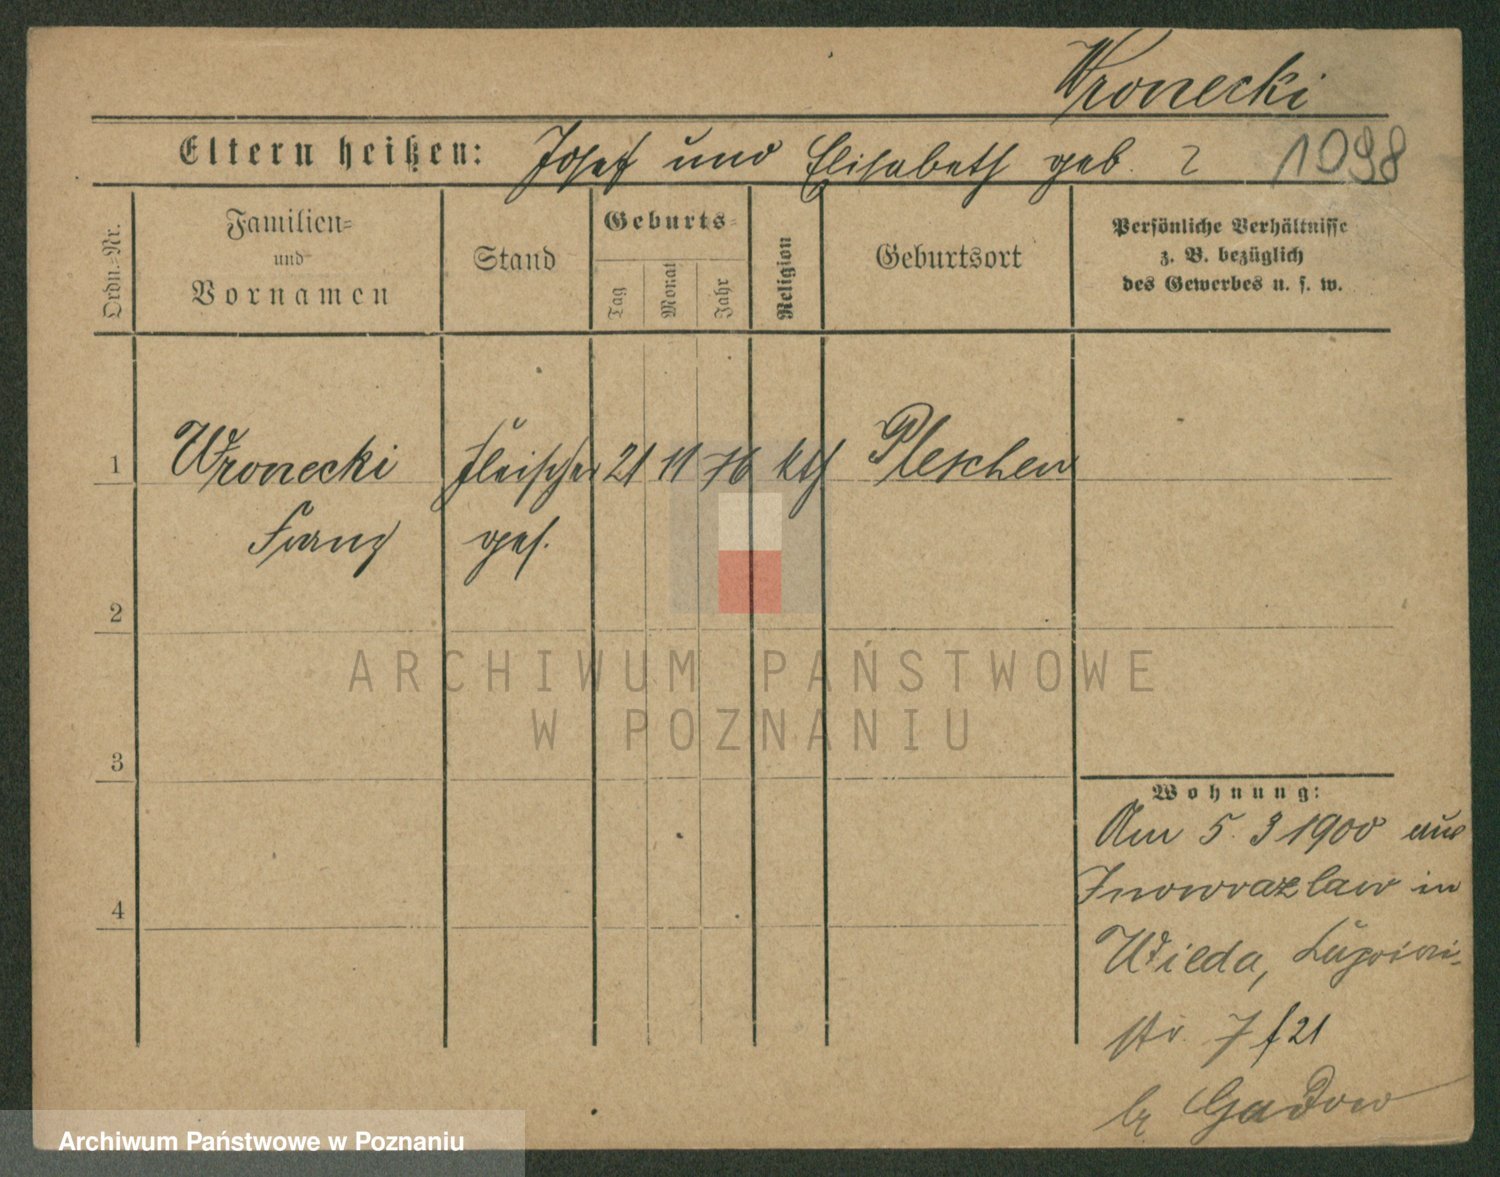 Wronecki
Eltern heißen: Josef und Elisabeth geb. ? 1098
Ordn.-Nr.
Familien-
und
Vornamen
Stand
Geburts-
Tag
Monat
Jahr
Religion
Geburtsort
Persönliche Verhältnisse
z. B. bezüglich
des Gewerbes u. s. w.
1 Wronecki Fleischer 21 11 76 kth Pleschen
Franz ges.
2
ARCHIWUM PAŃSTWOWE
W POZNANIU
3
Wohnung:
Am 5. 3 1900 aus
Inowrazlaw in
4
Wilda,
str. 7 f 21
b
Archiwum Państwowe w Poznaniu